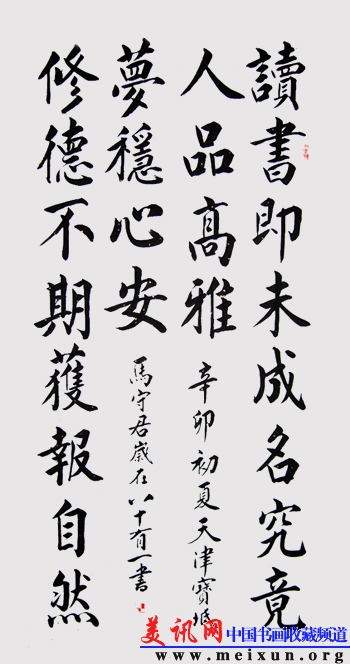 讀書即未成名究竟
人品高雅
辛卯初夏天津寶坻
夢穩心安
馬守君歲在八十有一書
修德不期獲報自然
美讯网 中国书画收藏频道
www.meixun.org